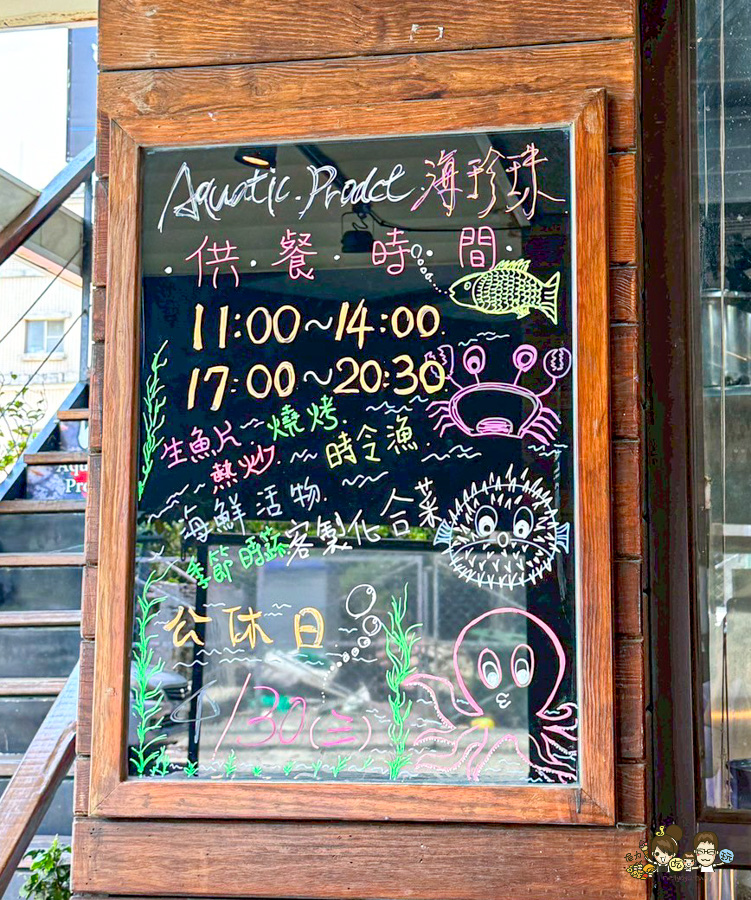 Aquatic.Prodct.海珍珠
·供·餐·時·間·
11:00~14:00
17:00~20:30
生魚片.燒烤.
熱炒.時令漁.
海鮮活物.
季節時蔬客製化合菜
公休日
4/30(三)
Aqua
Pro